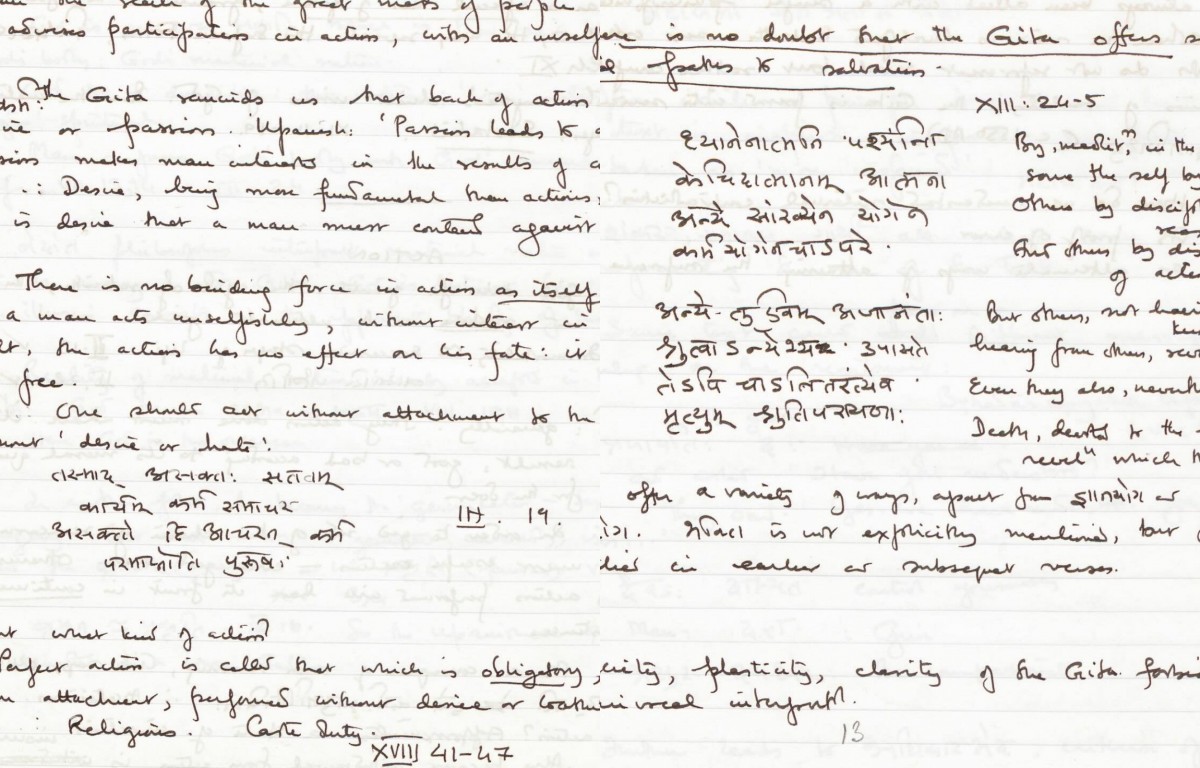 advises participation in action, with an unself
The Gita reminds us that back of action
or passion. Upanish: 'Passion leads to
makes man interested in the results of a
∴ Desire, being more fundamental than actions,
is desire that a man must contend against
There is no binding force in action as itself
a man acts unselfishly, without interest in
the action has no effect on his fate: it
free.
One should act without attachment to the
'desire or hate':
तस्माद् असक्तः सततम्
कार्यम् कर्म समाचर
असक्तो हि आचरन् कर्म
परमाप्नोति पुरुषः
III. 19.
what kind of action?
Perfect action is called that which is obligatory,
attachment, performed without desire or loath
Religious. Caste Duty.
XVIII 41-47
is no doubt that the Gita offers s
paths to salvation.
XIII: 24-5
ध्यानेनात्मनि पश्यन्ति
केचिदात्मानम् आत्मना
अन्ये सांख्येन योगेन
कर्मयोगेनचाऽपरे.
By medit.n, in the
some the self by
Others by discip
But others by dis
of acti
अन्ये-तु एवम् अजानंतः
श्रुत्वाऽन्येभ्य उपासते
तेऽपि चाऽतितरंत्येव
मृत्युम् श्रुतिपरायणाः
But others, not
hearing from others,
Even they also,
Death, devoted to the
which
offer a variety of ways, apart from ज्ञानयोग or
is not explicitly mentioned, but
in earlier or subsequent verses.
plasticity, clarity of the Gita forbi
13